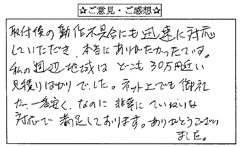 ☆ご意見・ご感想☆
取付後の動作不具合にも迅速に対応
していただき、本当にありがたかったである。
私の周辺地域は どこも 30万円近い
見積りばかりでした。ネット上でも御社
が一番安く、なのに 非常に ていねいな
対応で 満足しております。ありがとうござい
ました。